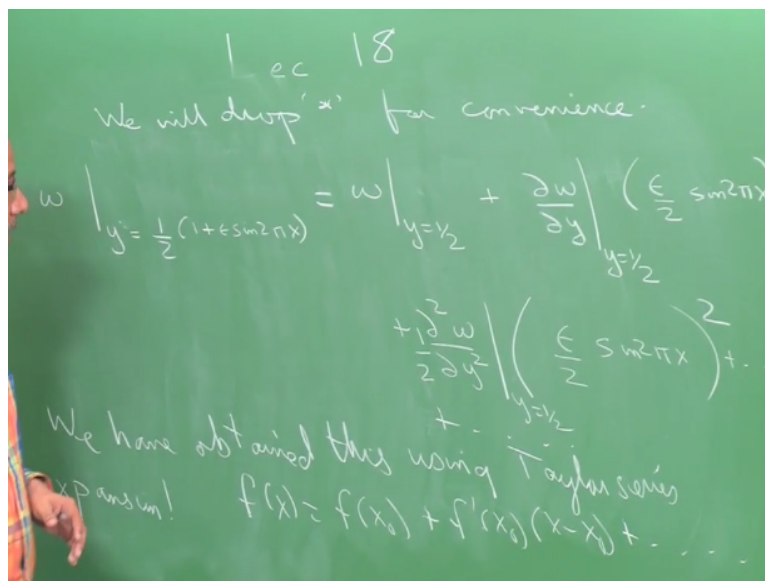 Lec 18
We will drop '*' for convenience.
w |y=1/2(1+ϵsin2πx) = w |y=1/2 + ∂w/∂y |y=1/2 (ϵ/2 sin2πx
+ 1/2 ∂²w/∂y² |y=1/2 (ϵ/2 sin2πx)² + ..
+ . . . .
We have obtained this using Taylor series
xpansion! f(x) = f(x₀) + f'(x₀)(x-x₀) + . . . .